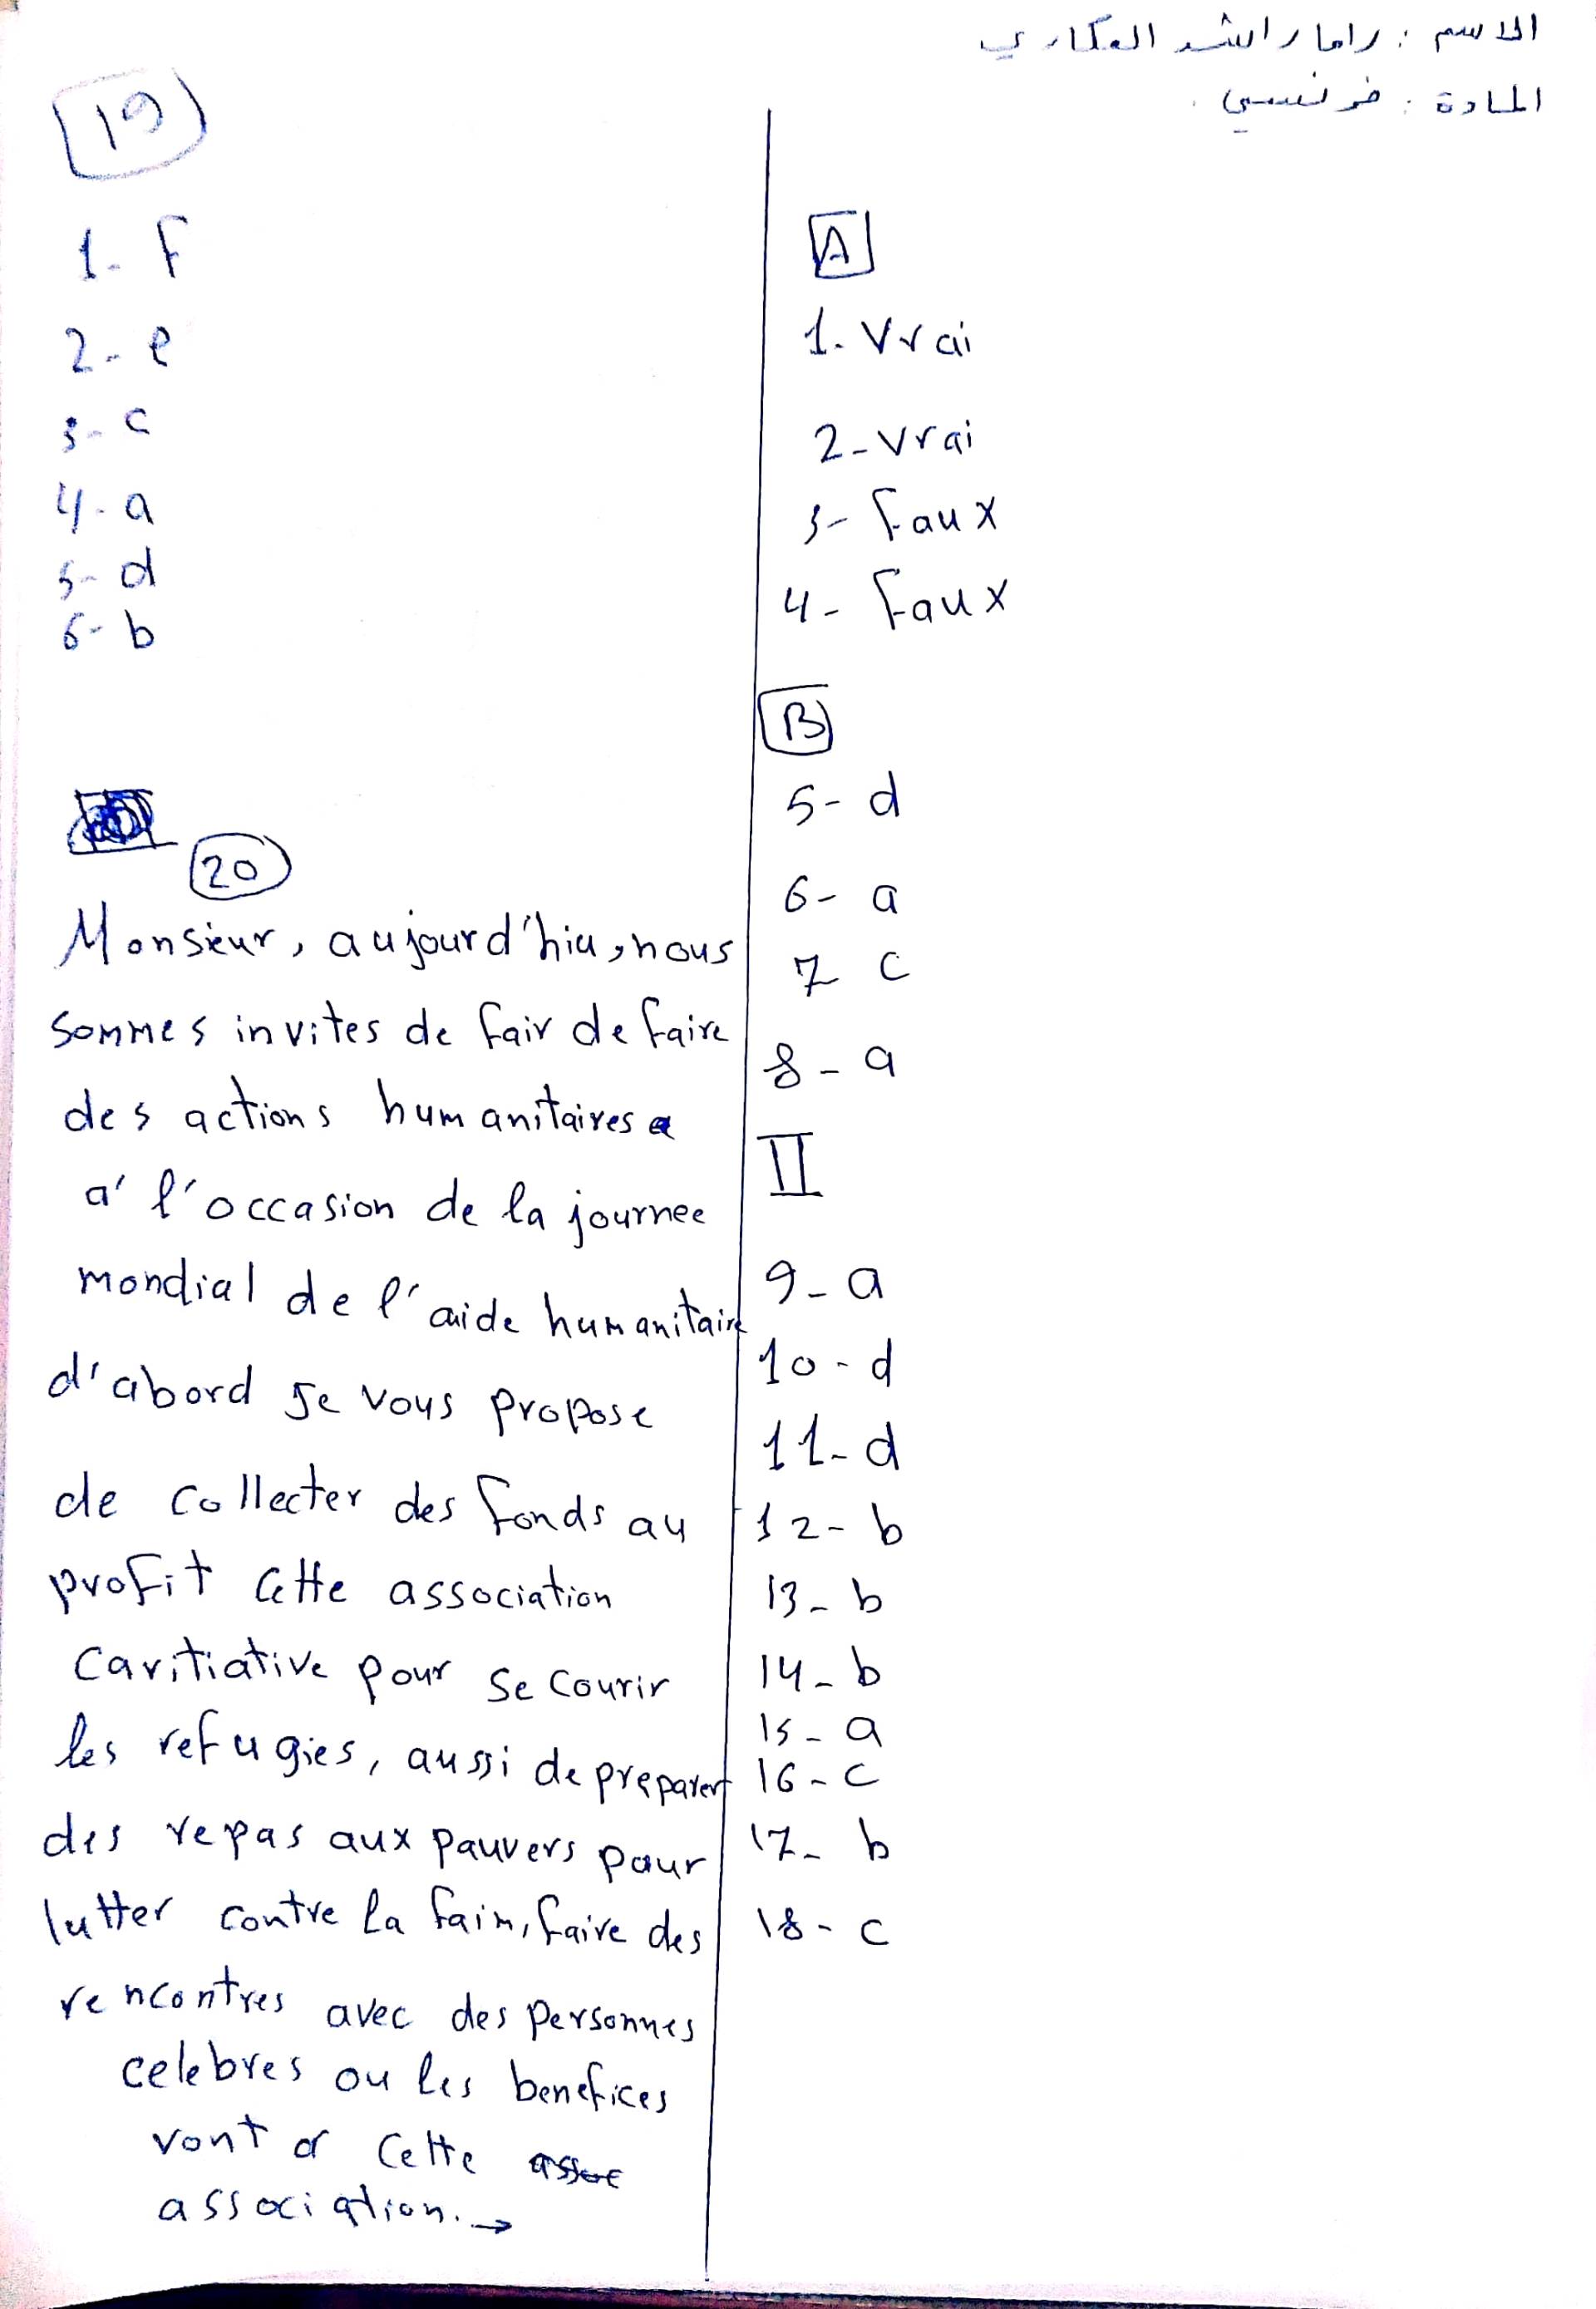 الاسم : راما راشد العكاري
المادة : فرنسي .
A
1. Vrai
2-vrai
3- Faux
4- Faux
B
5- d
6- a
7 c
8- a
II
9- a
10- d
11- d
12- b
13- b
14- b
15- a
16- c
17- b
18- c
19
1- F
2- e
3- c
4- a
5- d
6- b
20
Monsieur, aujourd'hiu, nous
sommes invites de fair de faire
des actions humanitaires
a' l'occasion de la journee
mondial de l'aide humanitaire
d'abord Je vous propose
de collecter des fonds au
profit cette association
caritiative pour se courir
les refugies, aussi de preparer
des repas aux pauvers pour
lutter contre la faim, faire des
rencontres avec des personnes
celebres ou les benefices
vont a cette
association. →